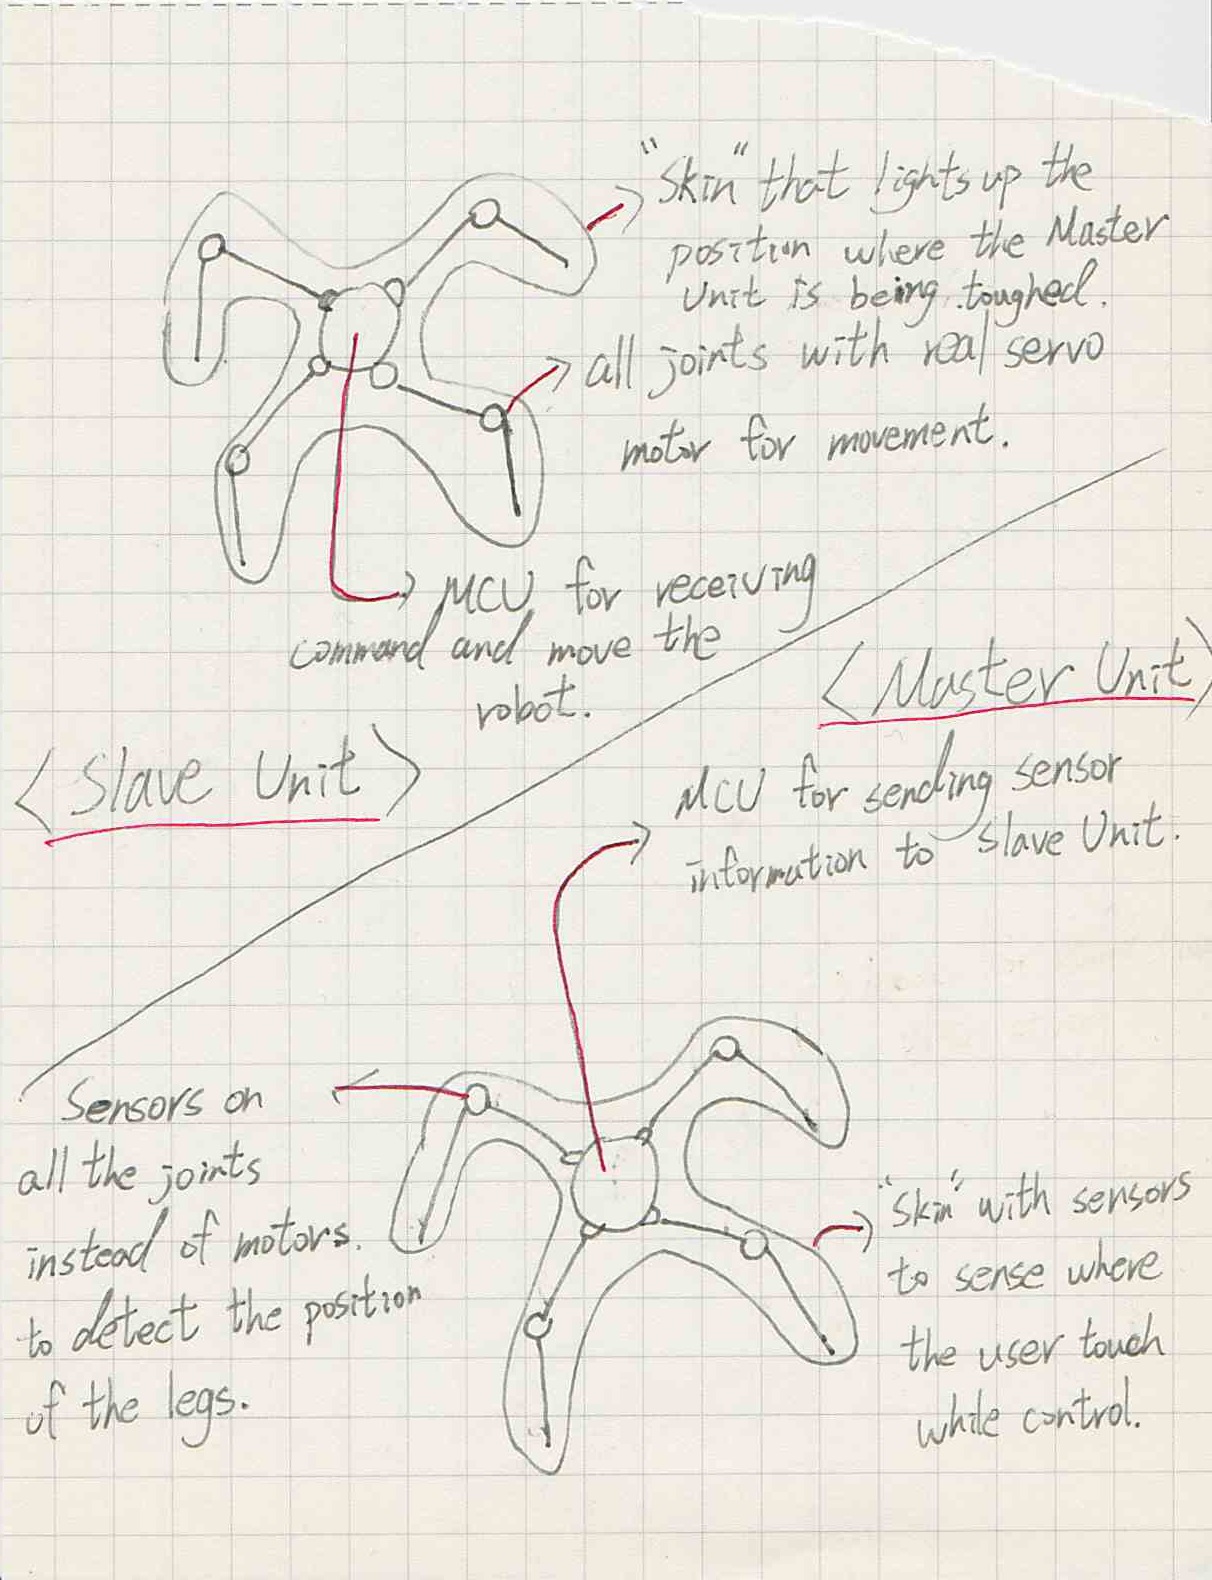 "Skin" that lights up the
position where the Master
Unit is being toughed.
all joints with real servo
motor for movement.
MCU for receiving
command and move the
robot.
<Slave Unit>
<Master Unit>
MCU for sending sensor
information to Slave Unit.
Sensors on
all the joints
instead of motors.
to detect the position
of the legs.
"Skin" with sensors
to sense where
the user touch
while control.